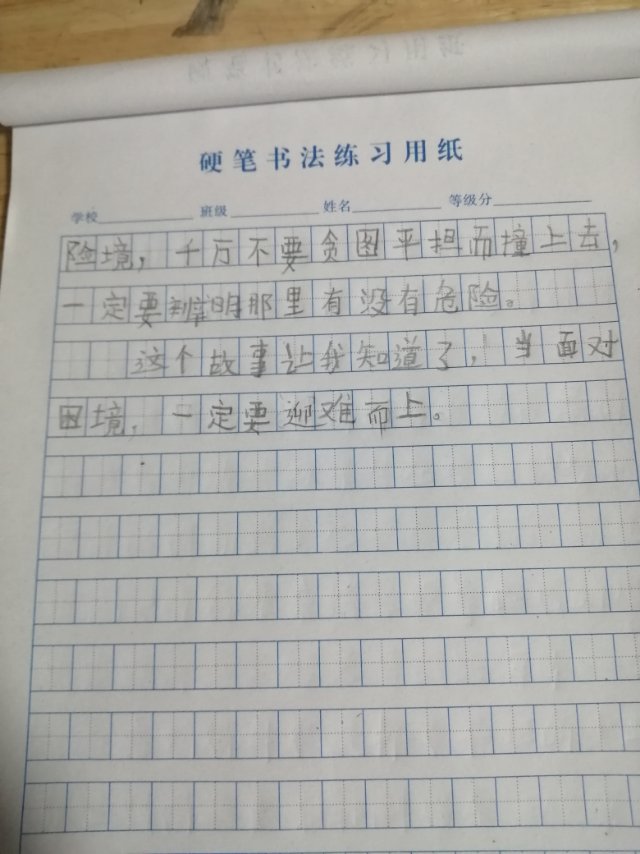 硬笔书法练习用纸
学校 班级 姓名 等级分
险境,千万不要贪图平担而撞上去,
一定要辨明那里有没有危险。
这个故事让我知道了,当面对
困境,一定要迎难而上。